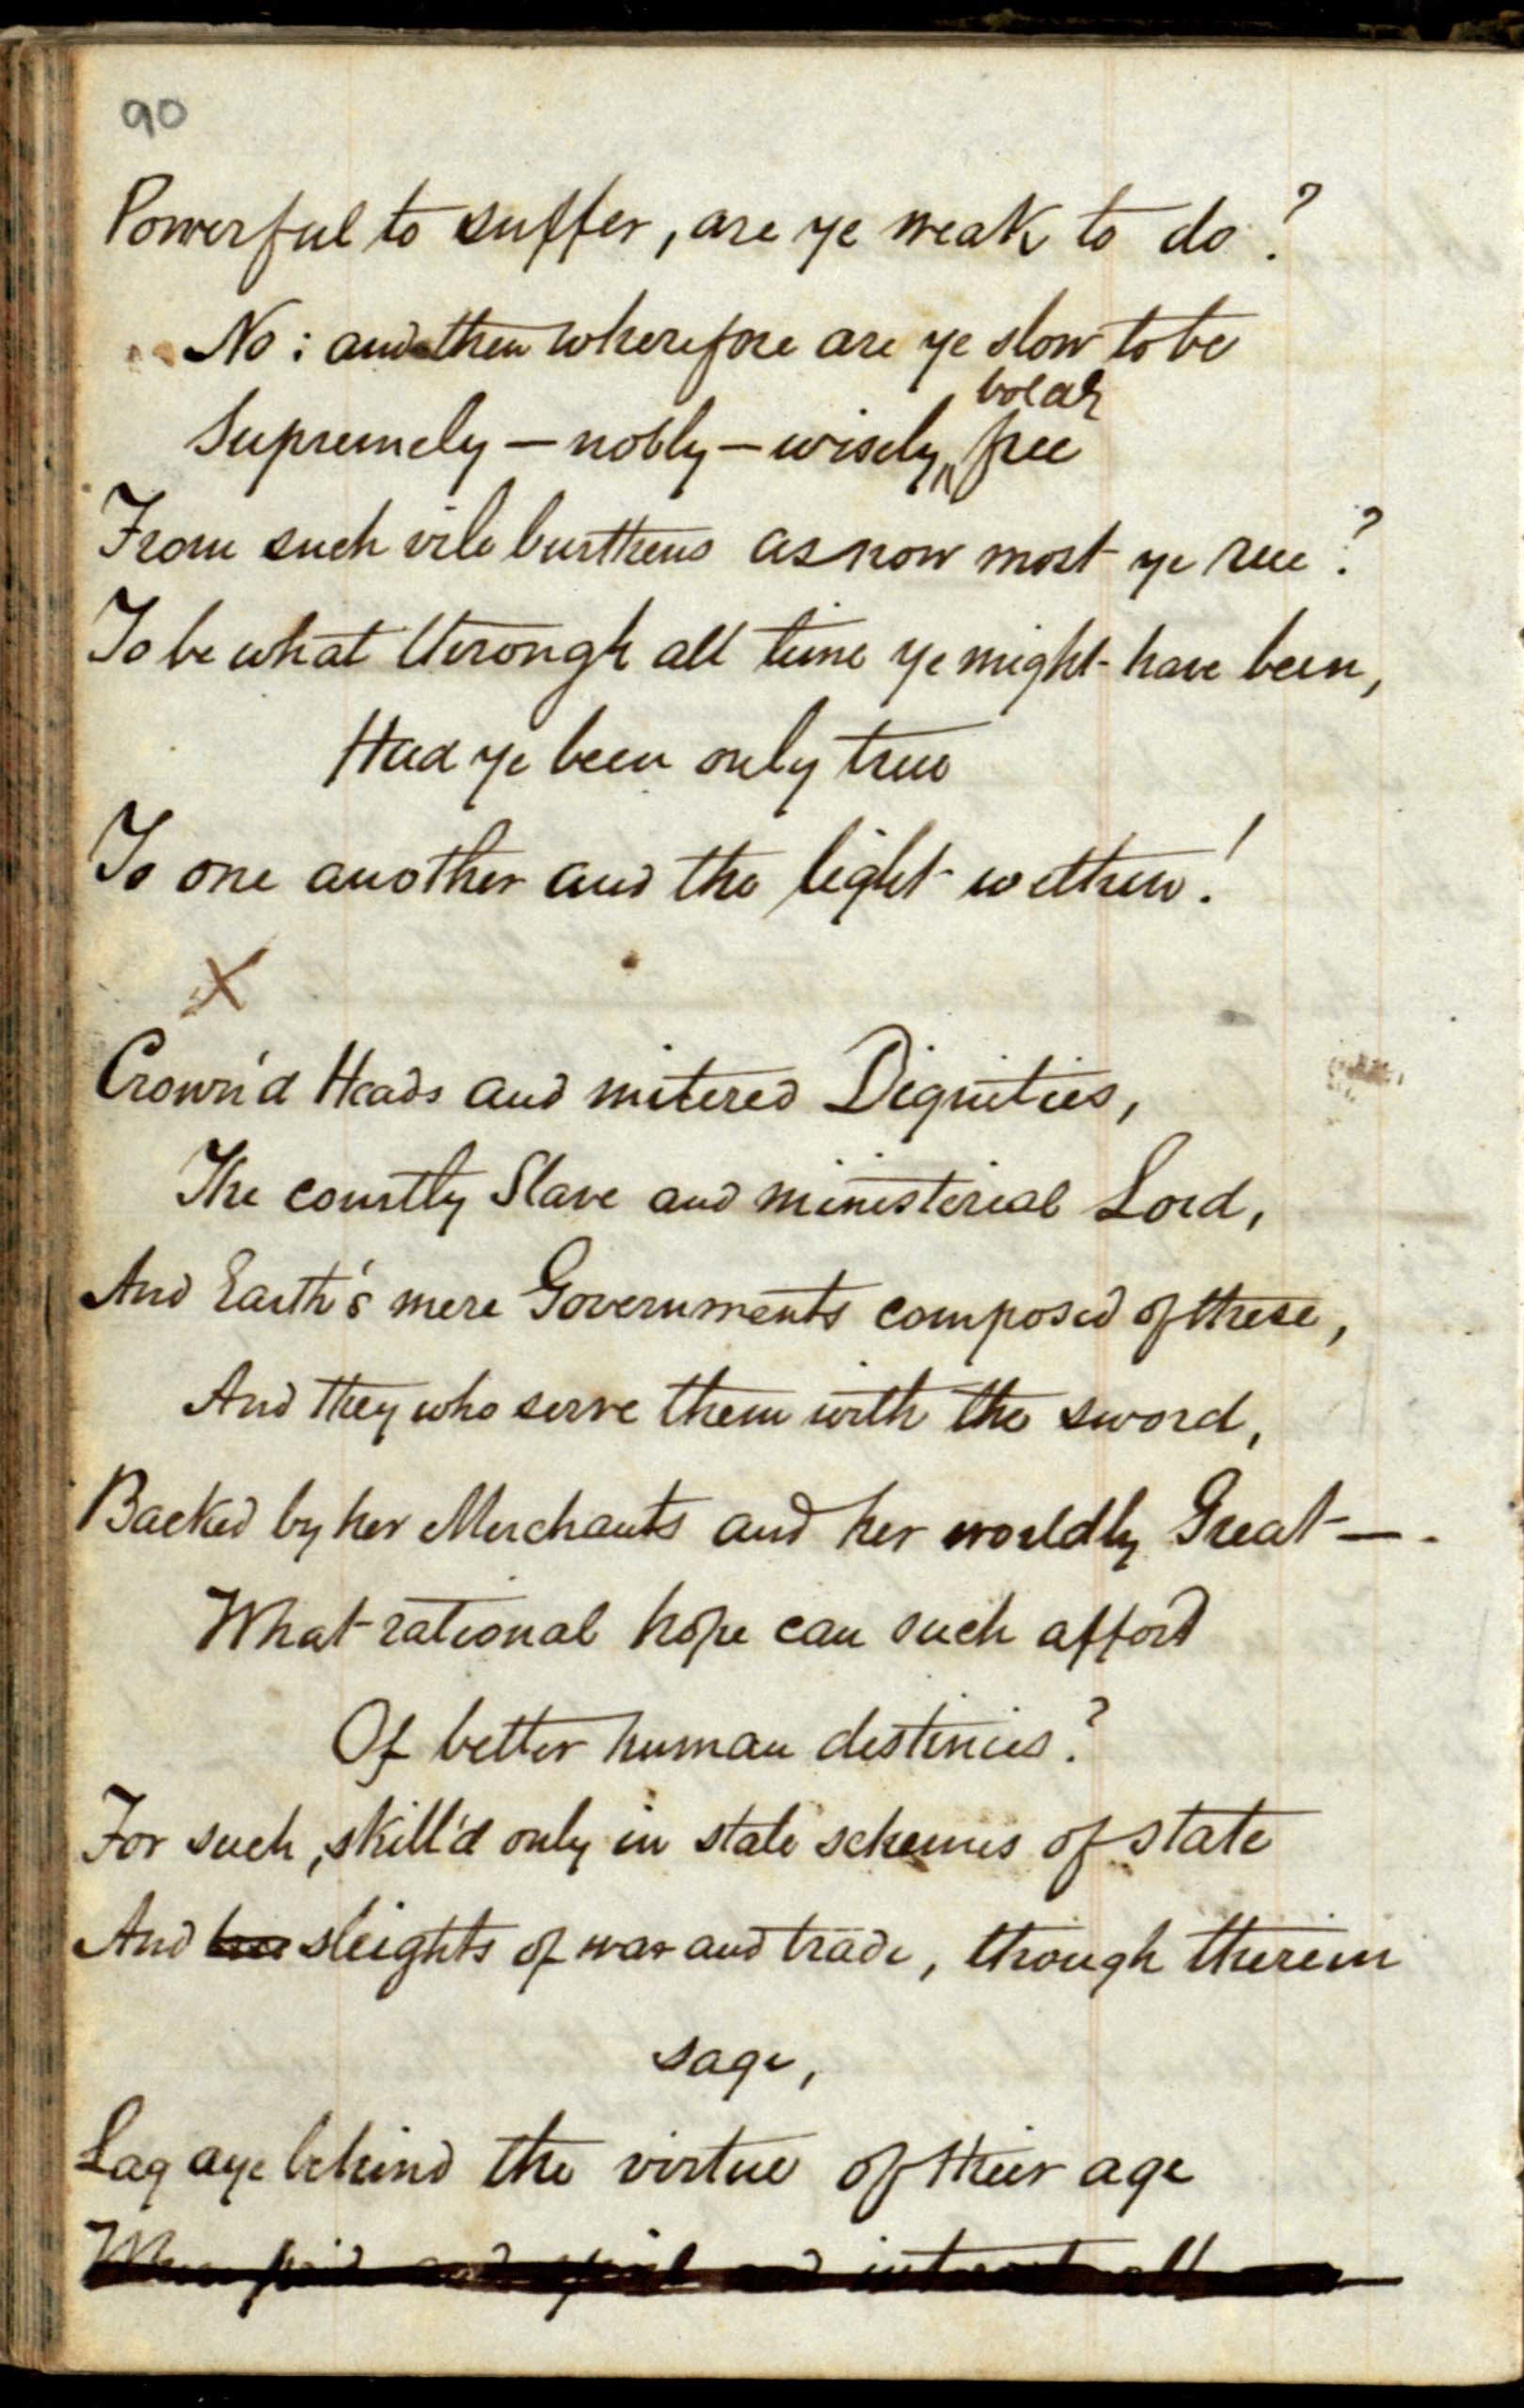 90
Powerful to suffer, are ye weak to do?
No: and then wherefore are ye slow to be
Supremely — nobly — wisely, free
From such vile burthens as now most ye rue?
To be what through all time ye might have been,
Had ye been only true
To one another and the light within!
X
Crown'd Heads and mitered Dignities,
The courtly Slave and ministerial Lord,
And Earth's mere Governments composed of these,
And they who serve them with the sword,
Backed by her Merchants and her worldly Great —.
What rational hope can such afford
Of better human destinies?
For such, skill'd only in stale schemes of state
And sleights of war and trade, though therein
sage,
Lag aye behind the virtue of their age